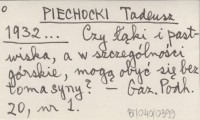 PIECHOCKI Tadeusz
1932... Czy łąki i past-
wiska, a w szczególności
górskie, mogą obyć się bez
tomasyny? – Gaz. Podh.
20, nr 1.